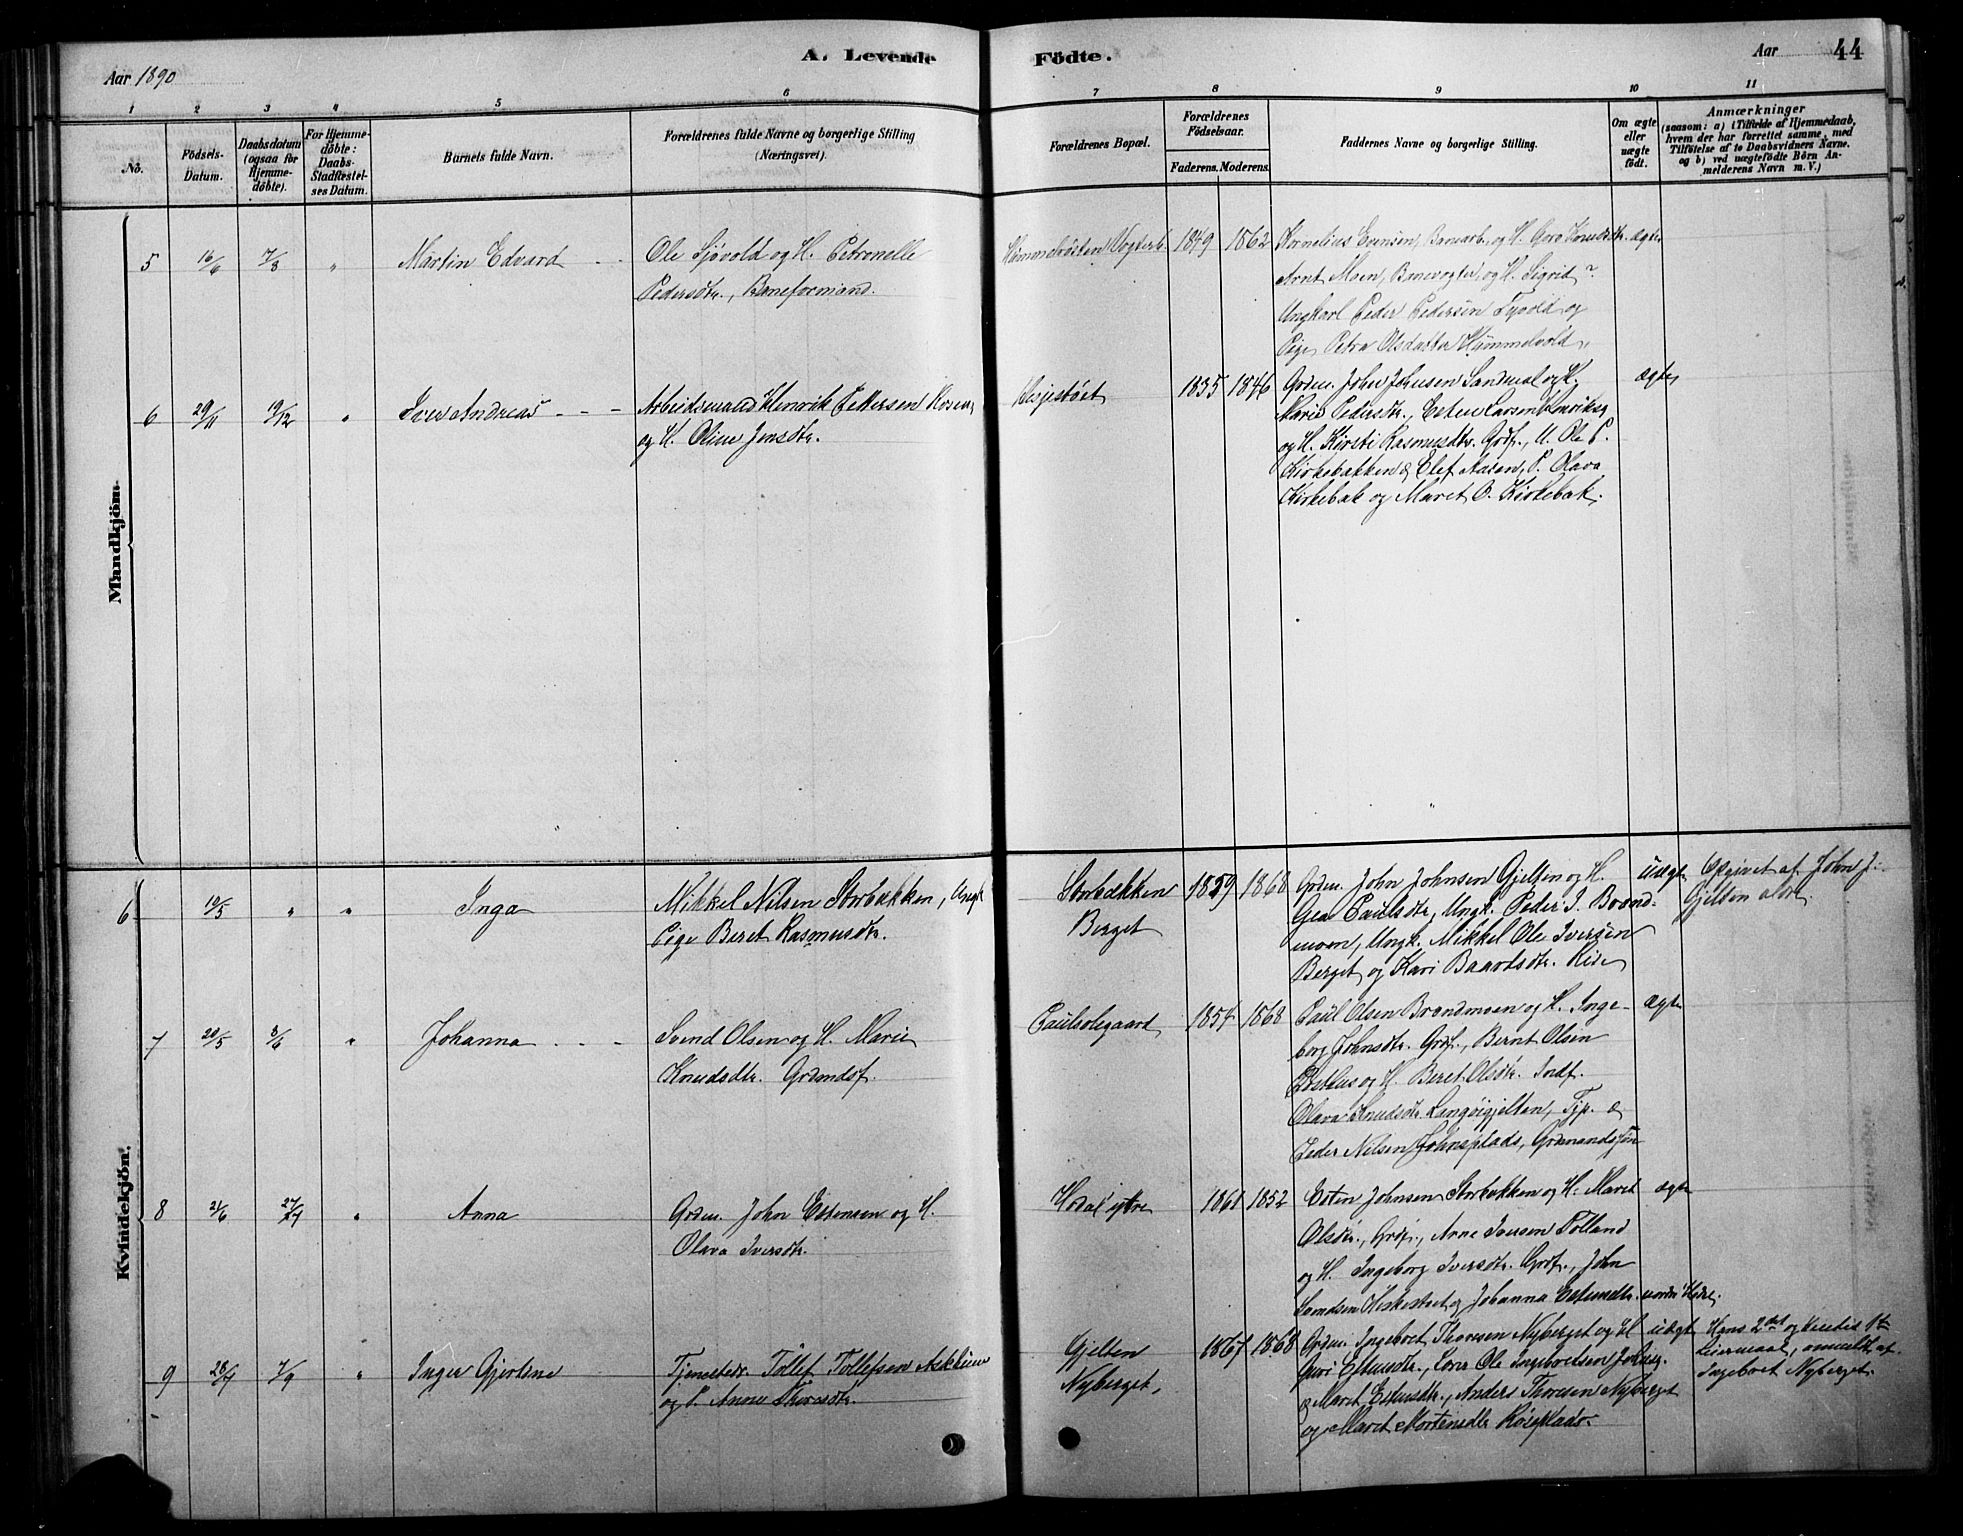 A. Levende
Födte.
Aar 1890
Aar
44
1 2 3 4 5 6
7 8 9 10 11
No.
Födsels-
Datum.
Daabsdatum
(ogsaa for
Hjemme-
döbte).
For Hjemme-
döbte:
Daabs-
Stadfæstel-
ses Datum.
Barnets fulde Navn.
Forældrenes fulde Navne og borgerlige Stilling
(Næringsvei).
Forældrenes Bopæl.
Forældrenes
Födselsaar.
Faderens. Moderens.
Faddernes Navne og borgerlige Stilling.
Om ægte
eller
uægte
födt.
Anmærkninger
(saasom: a) i Tilfælde af Hjemmedaab,
hvem der har forrettet samme, med
Tilföielse af to Daabsvidners Navne.
og b) ved uægtefödte Börn An-
melderens Navn m. V.)
Mandkjön.
5 16/6 7/8 " Martin Edvard
Ole Sjøvold og H. Petronelle
Pedersdtr., Baneformand.
1849 1862
Kornelius Evensen, Banearb. og H. Goro Knudsdtr. ægte
Arnt Moen, Banevogter og H. Sigrid ?
Ungkarl Peder Pedersen
og
Pige Petra Olsdatter Hummelvold.
6 29/11 19/12 " Iver Andreas
Arbeidsmand Henrik Pettersen Rosen
og H. Oline Jensdtr.
1835 1846
Grdm. John Johnsen Sandmæl og H.
Marie Pedersdtr., Esten Larsen
og H. Kirsti Rasmusdtr. Grdf., U. Ole P.
Kirkebakken & Elef Aasen, P. Olava
Kirkebak og Maret O. Kirkebak.
ægte
Kvindekjön.
6 10/5 " " Inga
Mikkel Nilsen Storbækken, Ungk
Pige Beret Rasmusdtr.
Storbækken
Berget
1859 1868
Grdm. John Johnsen Gjelten og H.
Gea Paulsdtr, Ungk. Peder I. Brand-
moen, Ungk. Mikkel Ole Iversen
Berget og Kari Baardsdtr.
uægte
Opgivet af John J.
Gjelten
7 20/5 8/6 " Johanna
Svend Olsen og H. Marie
Knudsdtr. Grdmdsf.
Paulsolegaard
1854 1868
Paul Olsen Brandmoen og H. Inge-
borg Johnsdtr. Grdf., Bernt Olsen
og H. Beret Olsdtr. Indf.
Olava Knudsdtr. Langøigjelten, Tjp. &
Peder Nilsen Johnsplads, Grdmandssøn
ægte
8 21/6 " Anna
Grdm. John Estensen og H.
Olava Iversdtr.
Hodal ytre
1861 1852
Esten Johnsen Storbækken og H. Maret
Olsdtr., Grdf., Arne Iversen Tolland
og H. Ingeborg Iversdtr. Grdf., John
og Johanna Estensdtr.
ægte
9 28/7 7/9 " Inger Gjertine
Tollef Tollefsen
og P. Anne Thoresdtr.
Gjelten
Nyberget,
1867 1868
Grdm. Ingebret Thoresen Nyberget og H
Guri Estensdtr., Ole Ingebretsen
& Maret Estensdtr., Anders Thoresen Nyberget
og Maret Mortensdtr Røseplads.
uægte
Hans 2det og hendes 1ste
Leiermaal, anmeldt af
Ingebret Nyberget.